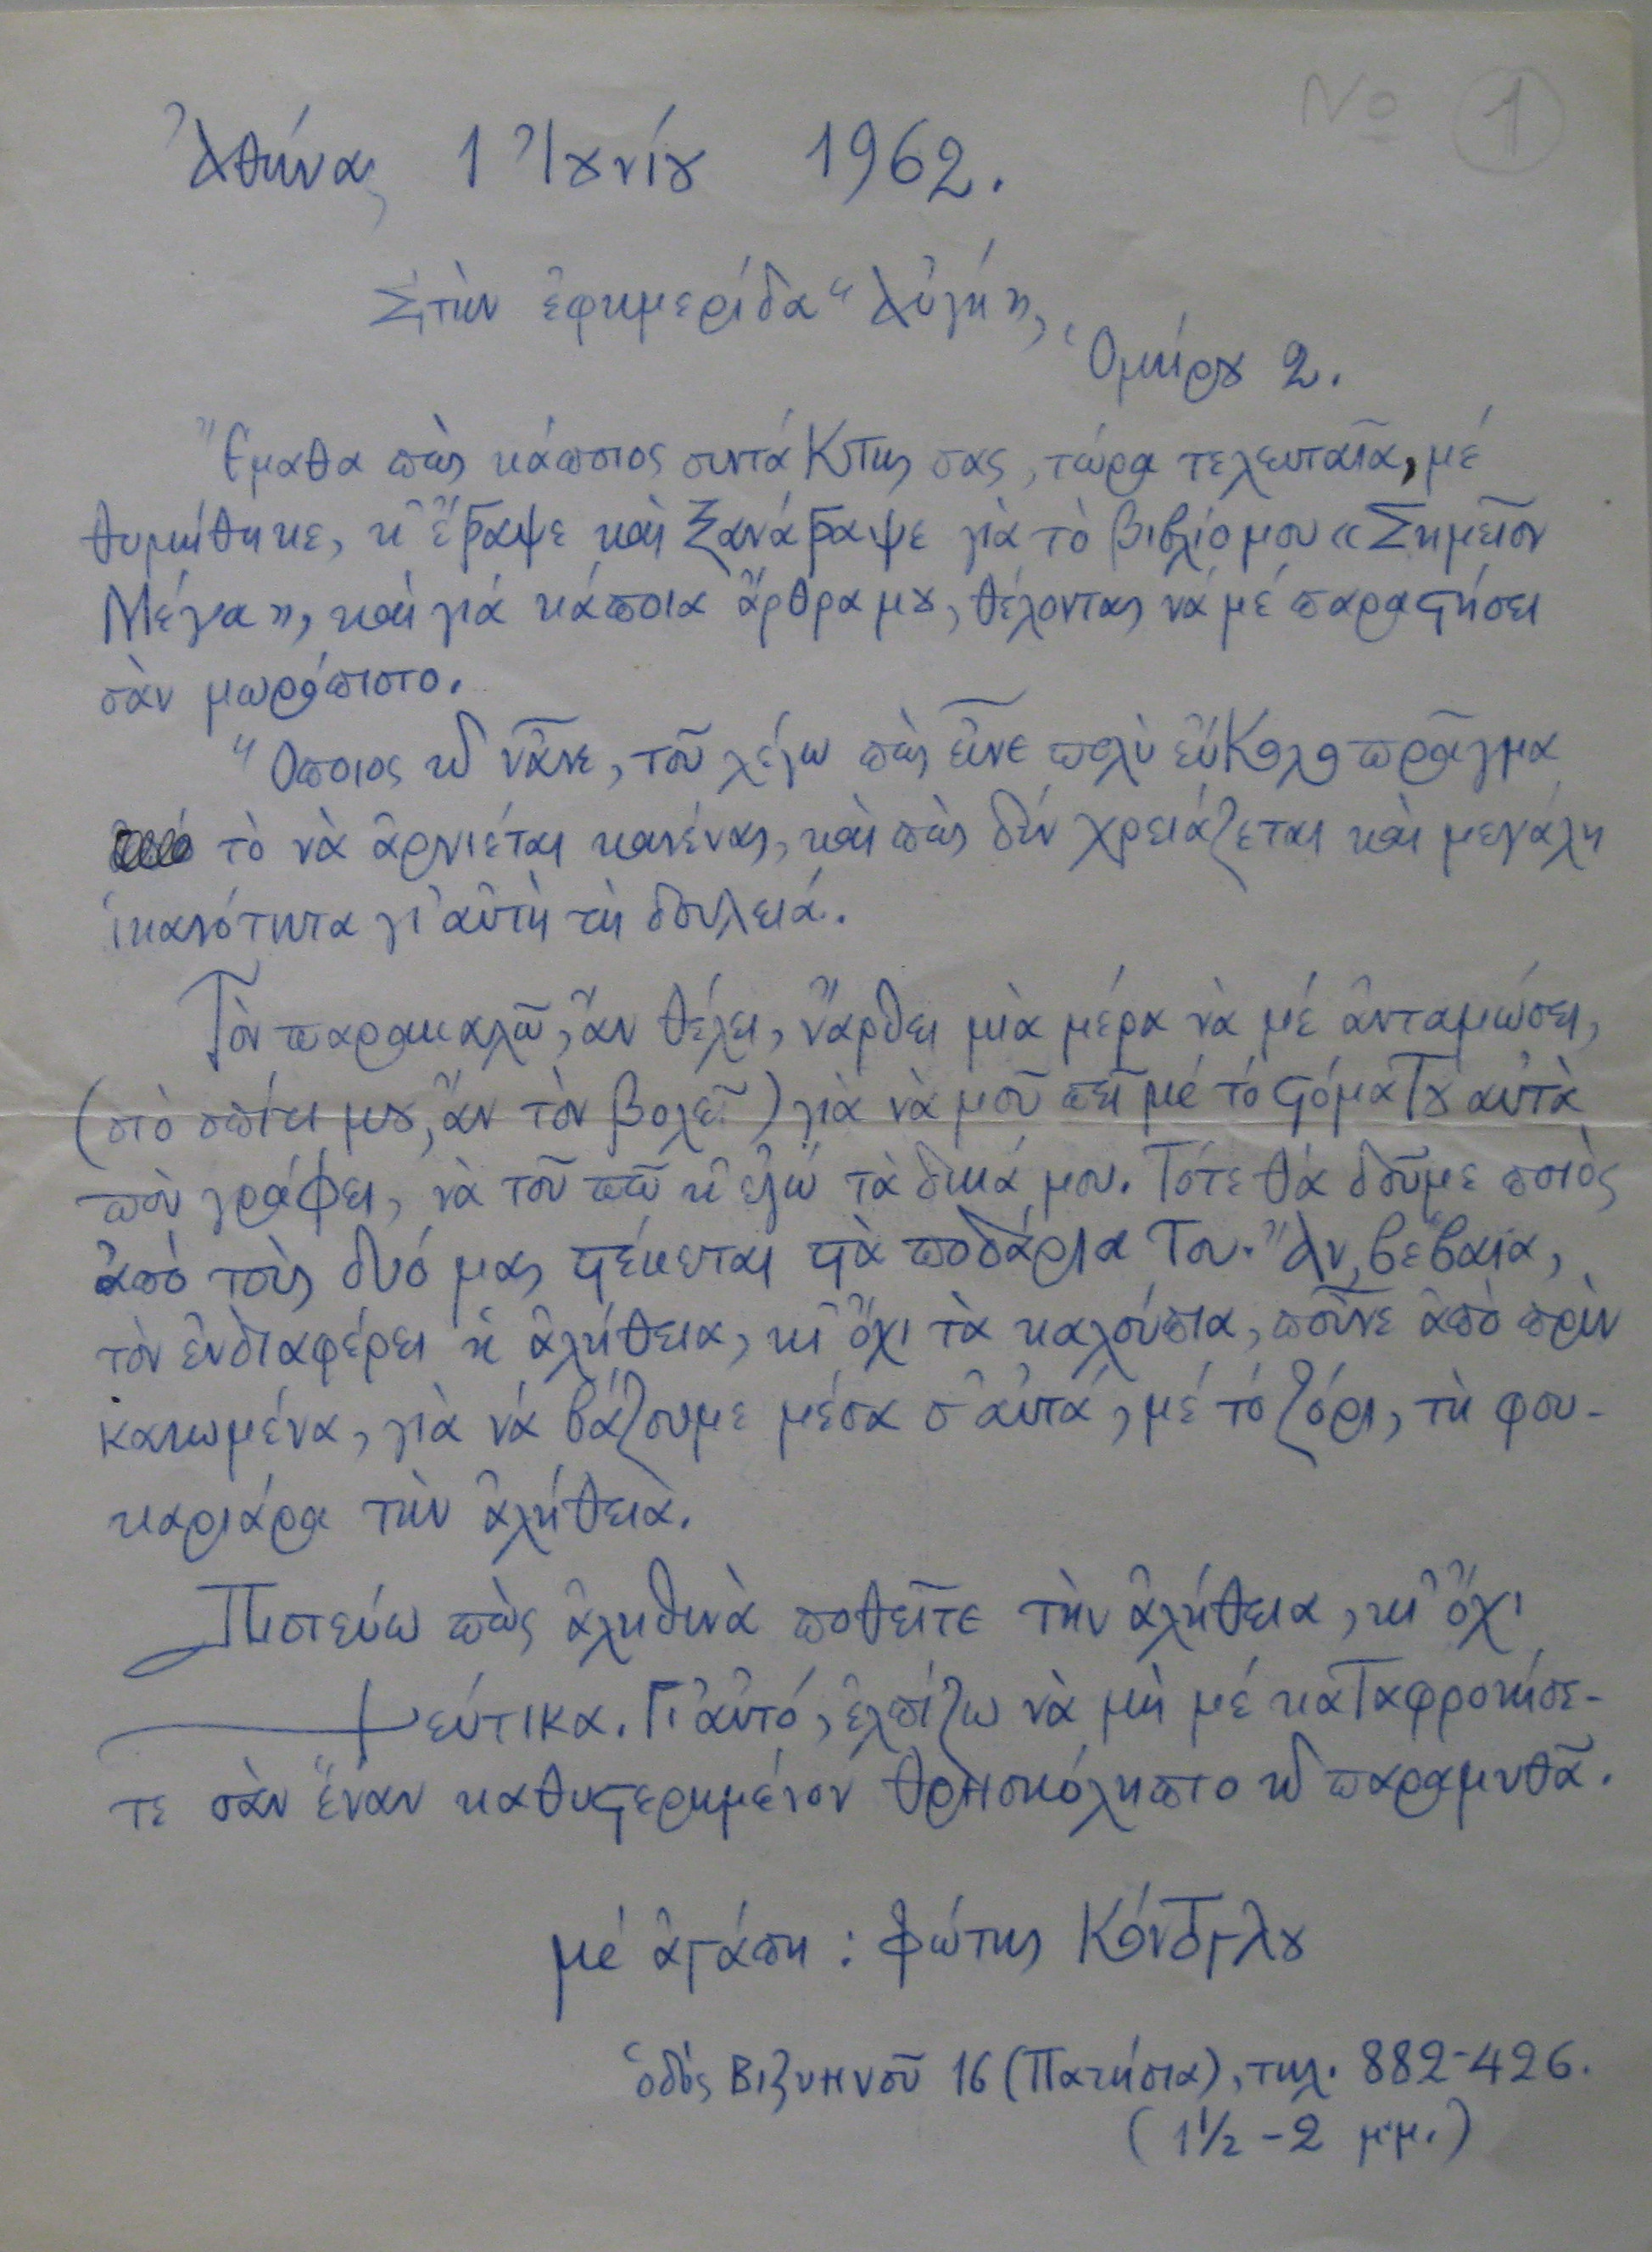 Νο 1
Ἀθήνα, 1 Ἰουνίου 1962.
Στὴν ἐφημερίδα "Αὐγή",
Ὁμήρου 2.
Ἔμαθα πὼς κάποιος συντάκτης σας, τώρα τελευταῖα, μέ
θυμήθηκε, κ' ἔγραψε καὶ ξανάγραψε γιὰ τὸ βιβλίο μου «Σημεῖον
Μέγα», καὶ γιά κάποια ἄρθρα μου, θέλοντας νά μέ παραστήσει
σὰν μωρόπιστο.
Ὅποιος κι νἆναι, τοῦ λέγω πὼς εἶνε πολὺ εὔκολο πρᾶγμα
τὸ νὰ ἀρνιέται κανένας, καὶ πὼς δὲν χρειάζεται καὶ μεγάλη
ἱκανότητα γι' αὐτὴ τὴ δουλειά.
Τὸν παρακαλῶ, ἂν θέλει, νἄρθει μιὰ μέρα νὰ μέ ἀνταμώσει,
(στὸ σπίτι μου, ἂν τὸν βολεῖ) γιὰ νὰ μοῦ πεῖ μέ τό στόμα του αὐτὰ
ποὺ γράφει, νὰ τοῦ πῶ κ' ἐγώ τὰ δικά μου. Τότε θά δοῦμε ποιὸς
ἀπὸ τοὺς δυό μας στέκεται στὰ ποδάρια του. Ἄν, βέβαια,
τὸν ἐνδιαφέρει ἡ ἀλήθεια, κι' ὄχι τὰ καλούπια, ποὖνε ἀπὸ πρὶν
καμωμένα, γιὰ νά βάζουμε μέσα σ' αὐτά, μέ τό ζόρι, τὴ φου-
καριάρα τὴν ἀλήθεια.
Πιστεύω πὼς ἀληθινὰ ποθεῖτε τὴν ἀλήθεια, κι' ὄχι
ψεύτικα. Γι' αὐτό, ἐλπίζω νὰ μὴ μέ καταφρονήσε-
τε σὰν ἕναν καθυστερημένον θρησκόληπτο κι παραμυθᾶ.
μέ ἀγάπη: Φώτης Κόντογλου
ὁδὸς Βιζυηνοῦ 16 (Πατήσια), τηλ. 882-426.
(1½ - 2 μ.μ.)